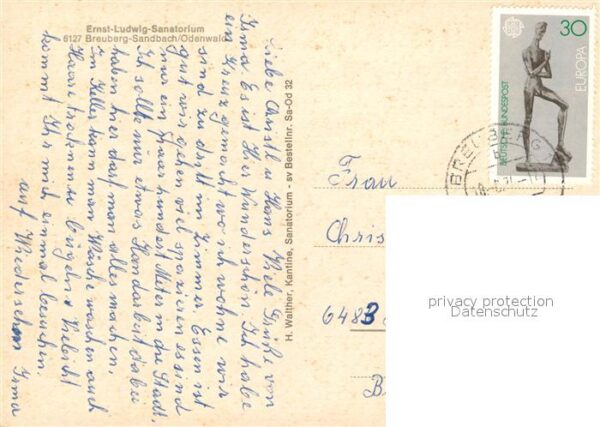 Ernst-Ludwig-Sanatorium
6127 Breuberg-Sandbach/Odenwald
Liebe Christl u Hans Viele Grüße von
Irma. Es ist Hier Wunderschön Ich habe
ein Kreuz gemacht wo ich wohne wir
sind zu dritt im Zimmer. Essen ist
gut wir gehen viel spazieren es sind
nur ein paar hundert Meter in die Stadt,
Ich sollte nur etwas Handarbeit dabei
haben hier darf man alles machen,
Im Keller kann man Wäsche waschen auch
Haare trocknen u bügeln, Vieleicht
kommt Ihr mich einmal besuchen.
auf Wiedersehen Irma
H. Walther, Kantine, Sanatorium - sv Bestellnr. Sa-Od 32
30
EUROPA
DEUTSCHE BUNDESPOST
BREUB
Frau
Chris
6483
B
privacy protection
Datenschutz